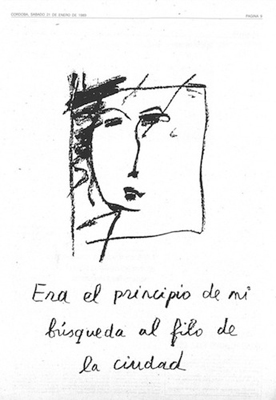 CORDOBA, SABADO 21 DE ENERO DE 1989
PAGINA 5
Era el principio de mi
búsqueda al filo de
la ciudad